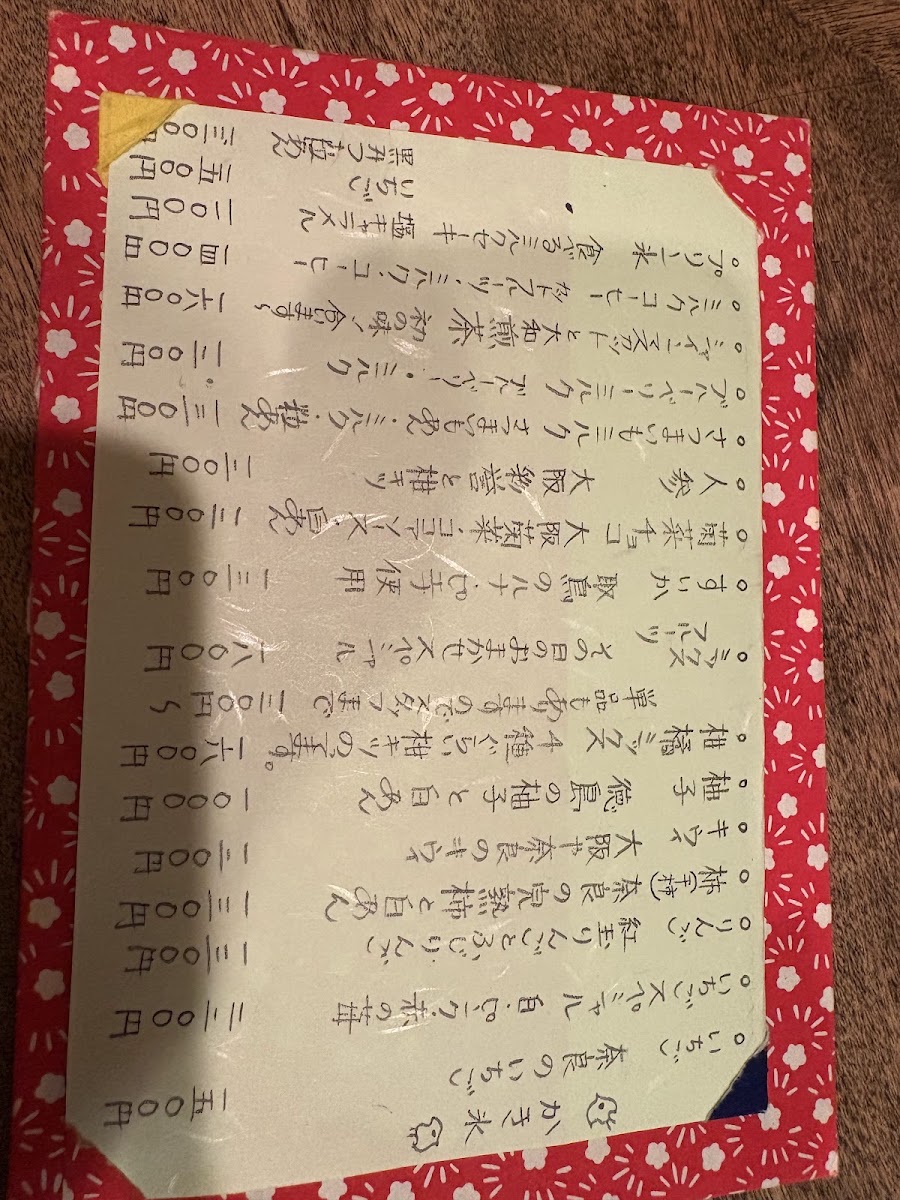 かき氷
いちご 奈良のいちご 一五〇〇円
いちごスペシャル 白・ピンク・赤の苺 二二〇〇円
りんご 紅玉りんごとふじりんご 一三〇〇円
柿(平種) 奈良の完熟柿と白あん 一三〇〇円
キウイ 大阪や奈良のキウイ 一二〇〇円
柚子 徳島の柚子と白あん 一〇〇〇円
柑橘ミックス 4種ぐらい柑キツのってます。 一六〇〇円
ミックスフルーツ その日のおまかせスペシャル 一八〇〇円
単品もありますのでスタッフまで 一三〇〇円〜
すいか 取鳥のルナ・ 使用 一三〇〇円
菊菜チョコ 大阪菊菜・ココアソース・白あん 一三〇〇円
人参 大阪彩誉と柑キツ 一二〇〇円
さつまいもミルク さつまいもあん・ミルク・粒あん 一三〇〇円
ブルーベリーミルク ブルーベリー・ミルク 一三〇〇円
シャインマスカットと大和煎茶 初の味 合います〜 一六〇〇円
ミルクコーヒー カットフルーツ・ミルク・コーヒー 一四〇〇円
プリン氷 食べるミルクセーキ 塩キャラメル 一二〇〇円
いちご 一五〇〇円
黒みつ粒あん 一三〇〇円